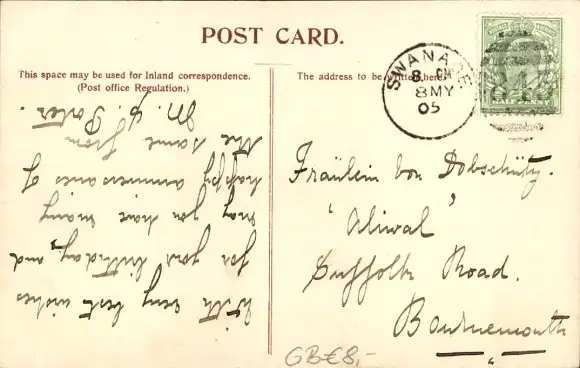 POST CARD.
This space may be used for Inland correspondence.
(Post office Regulation.)
The address to be written here.
SWANAGE
8 PM
8 MY
05
HALF PENNY
With very best wishes
for your birthday, and
may you have many
happy anniversaries of
the same from
M. G. Porter.
Fräulein von Dobschütz.
"Aliwal"
Suffolk Road.
Bournemouth
GB €8,-